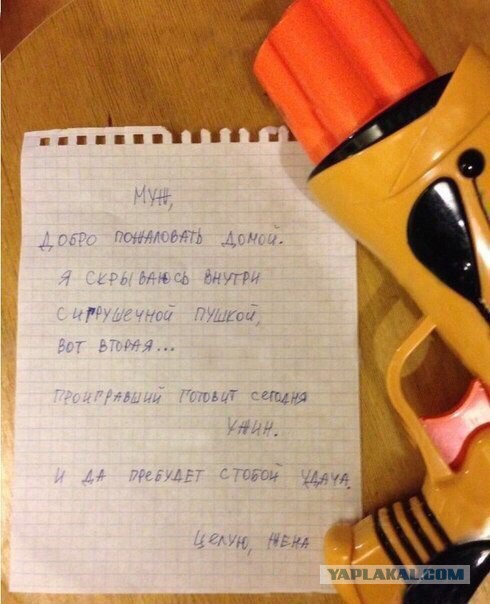 МУЖ,
ДОБРО ПОЖАЛОВАТЬ ДОМОЙ.
Я СКРЫВАЮСЬ ВНУТРИ
С ИГРУШЕЧНОЙ ПУШКОЙ,
ВОТ ВТОРАЯ...
ПРОИГРАВШИЙ ГОТОВИТ СЕГОДНЯ
УЖИН.
И ДА ПРЕБУДЕТ С ТОБОЙ УДАЧА.
ЦЕЛУЮ, ЖЕНА
YAPLAKAL.COM